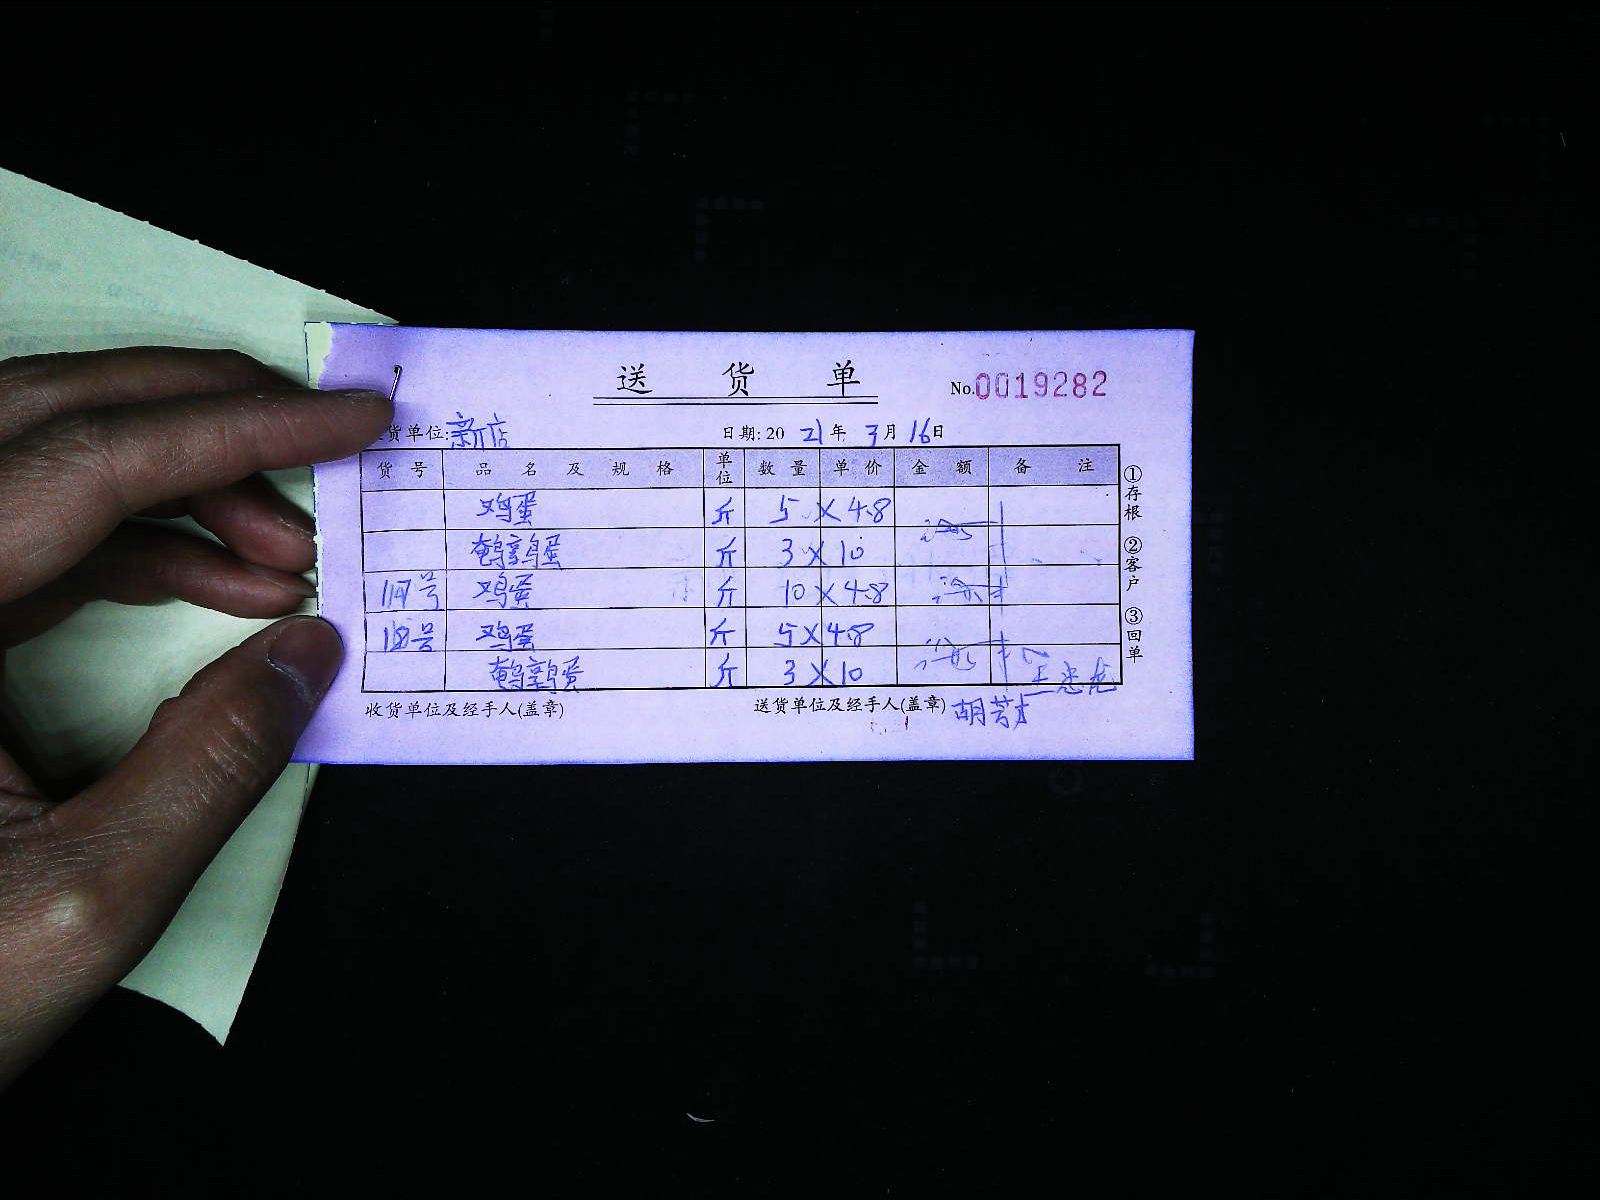 送货单 No.0019282
货单位:新店 日期:2021年3月16日
货号 品名及规格 单位 数量 单价 金额 备注
鸡蛋 斤 5 × 4.8
鹌鹑蛋 斤 3 × 10
117号 鸡蛋 斤 10 × 4.8
118号 鸡蛋 斤 5 × 4.8
鹌鹑蛋 斤 3 × 10
收货单位及经手人(盖章) 送货单位及经手人(盖章)
①存根 ②客户 ③回单